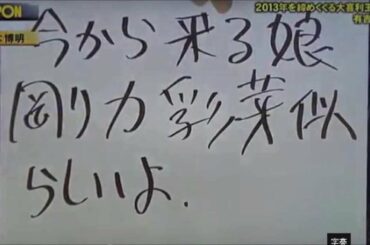 PON
2013年を締めくくる大喜利王
有吉
博明
今から来る娘
剛力彩芽似
らしいよ.
字幕